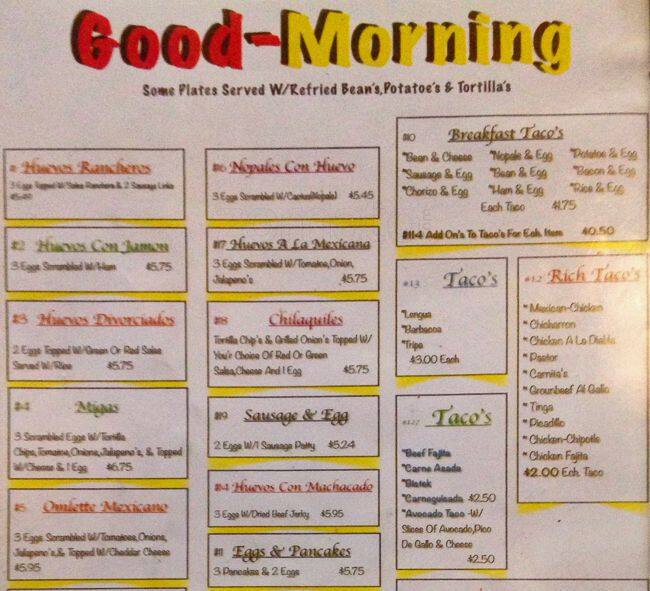 Good-Morning
Some Plates Served W/Refried Bean's,Potatoe's & Tortilla's
Huevos Rancheros
3 Eggs Topped W/Salsa Ranchera & 2 Sausage Links
#2 Huevos Con Jamon
3 Eggs Scrambled W/Ham $5.75
#3 Huevos Divorciados
2 Eggs Topped W/Green Or Red Salsa
Served W/Rice $5.75
#4 Migas
3 Scrambled Eggs W/Tortilla
Chips,Tomatoe,Onions,Jalapeno's, & Topped
W/Cheese & 1 Egg $6.75
#5 Omlette Mexicano
3 Eggs Scrambled W/Tomatoes,Onions,
Jalapeno's,& Topped W/Cheddar Cheese
$5.95
#6 Nopales Con Huevo
3 Eggs Scrambled W/Cactus(Nopale) $5.45
#7 Huevos A La Mexicana
3 Eggs Scrambled W/Tomatoe,Onion,
Jalapeno's $5.75
#8 Chilaquiles
Tortilla Chip's & Grilled Onion's Topped W/
You'r Choice Of Red Or Green
Salsa,Cheese And 1 Egg $5.75
#9 Sausage & Egg
2 Eggs W/1 Sausage Patty $5.24
Huevos Con Machacado
3 Eggs W/Dried Beef Jerky $5.95
#11 Eggs & Pancakes
3 Pancakes & 2 Eggs $5.75
#10 Breakfast Taco's
*Bean & Cheese *Nopale & Egg *Potatoe & Egg
*Sausage & Egg *Bean & Egg *Bacon & Egg
*Chorizo & Egg *Ham & Egg *Rice & Egg
Each Taco $1.75
#114 Add On's To Taco's For Eah. Item $0.50
#13 Taco's
*Lengua
*Barbacoa
*Tripa
$3.00 Each
Taco's
*Beef Fajita
*Carne Asada
*Bistek
*Carneguisada $2.50
*Avocado Taco -W/
Slices Of Avocado,Pico
De Gallo & Cheese
$2.50
#12 Rich Taco's
* Mexican-Chicken
* Chicharron
* Chicken A La Diabla
* Pastor
* Carnita's
* Grounbeef Al Gallo
* Tinga
* Picadillo
* Chicken-Chipotle
* Chicken Fajita
$2.00 Ech. Taco